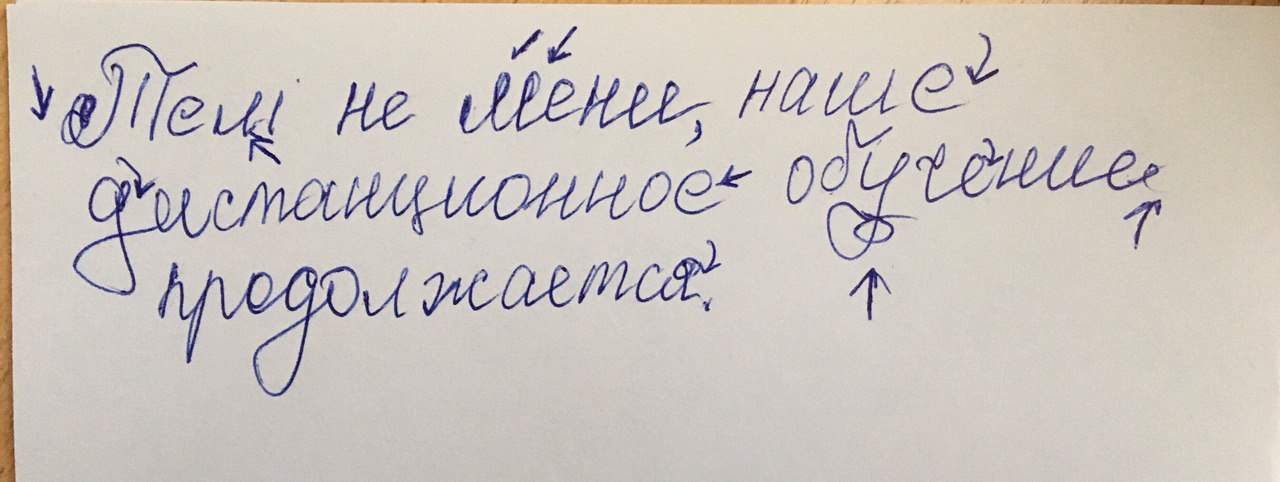 Тем не мени, наше
дистанционное обучение
продолжается.